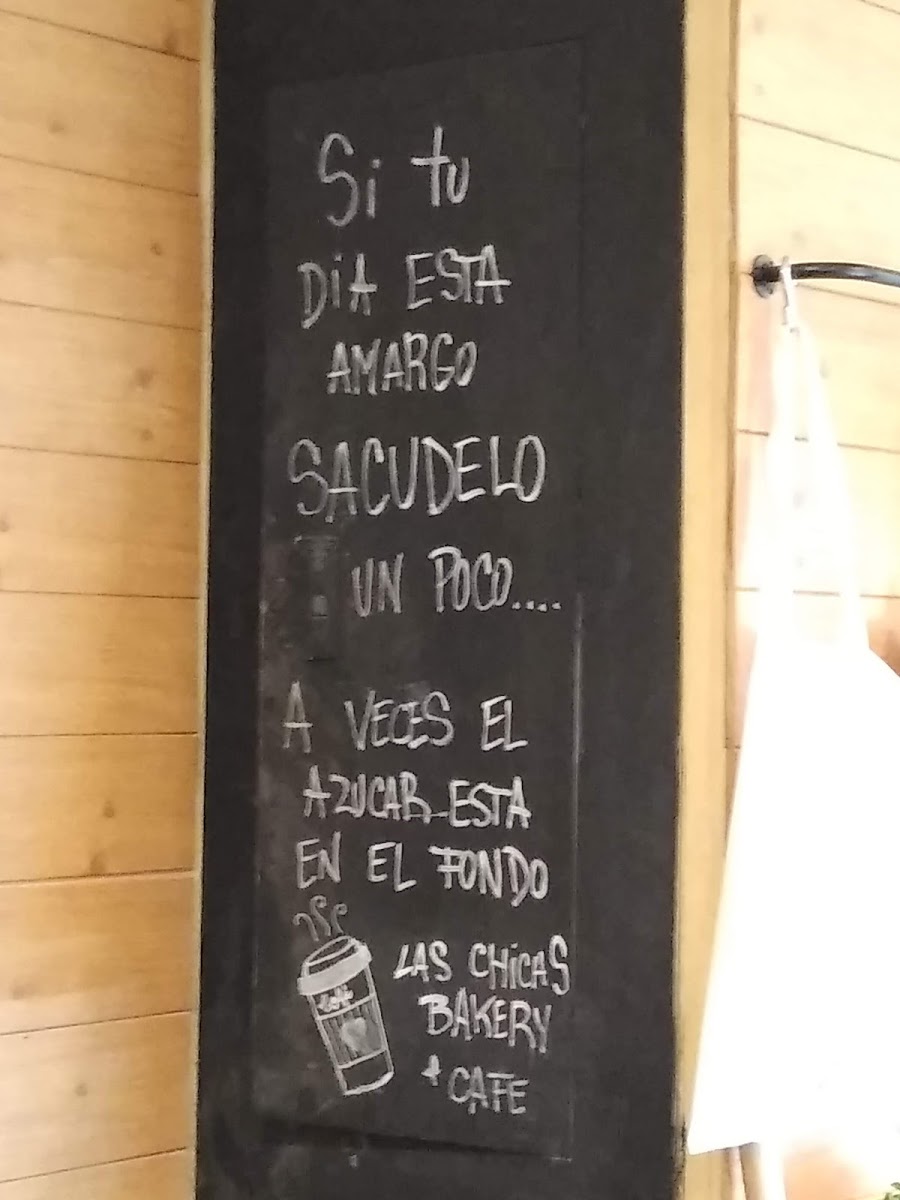 Si tu
DiA ESTA
AMARGO
SACUDELO
UN POCO....
A VECES EL
AZUCAR ESTA
EN EL FONDO
LAS CHicAS
BAKERY
+ CAFE